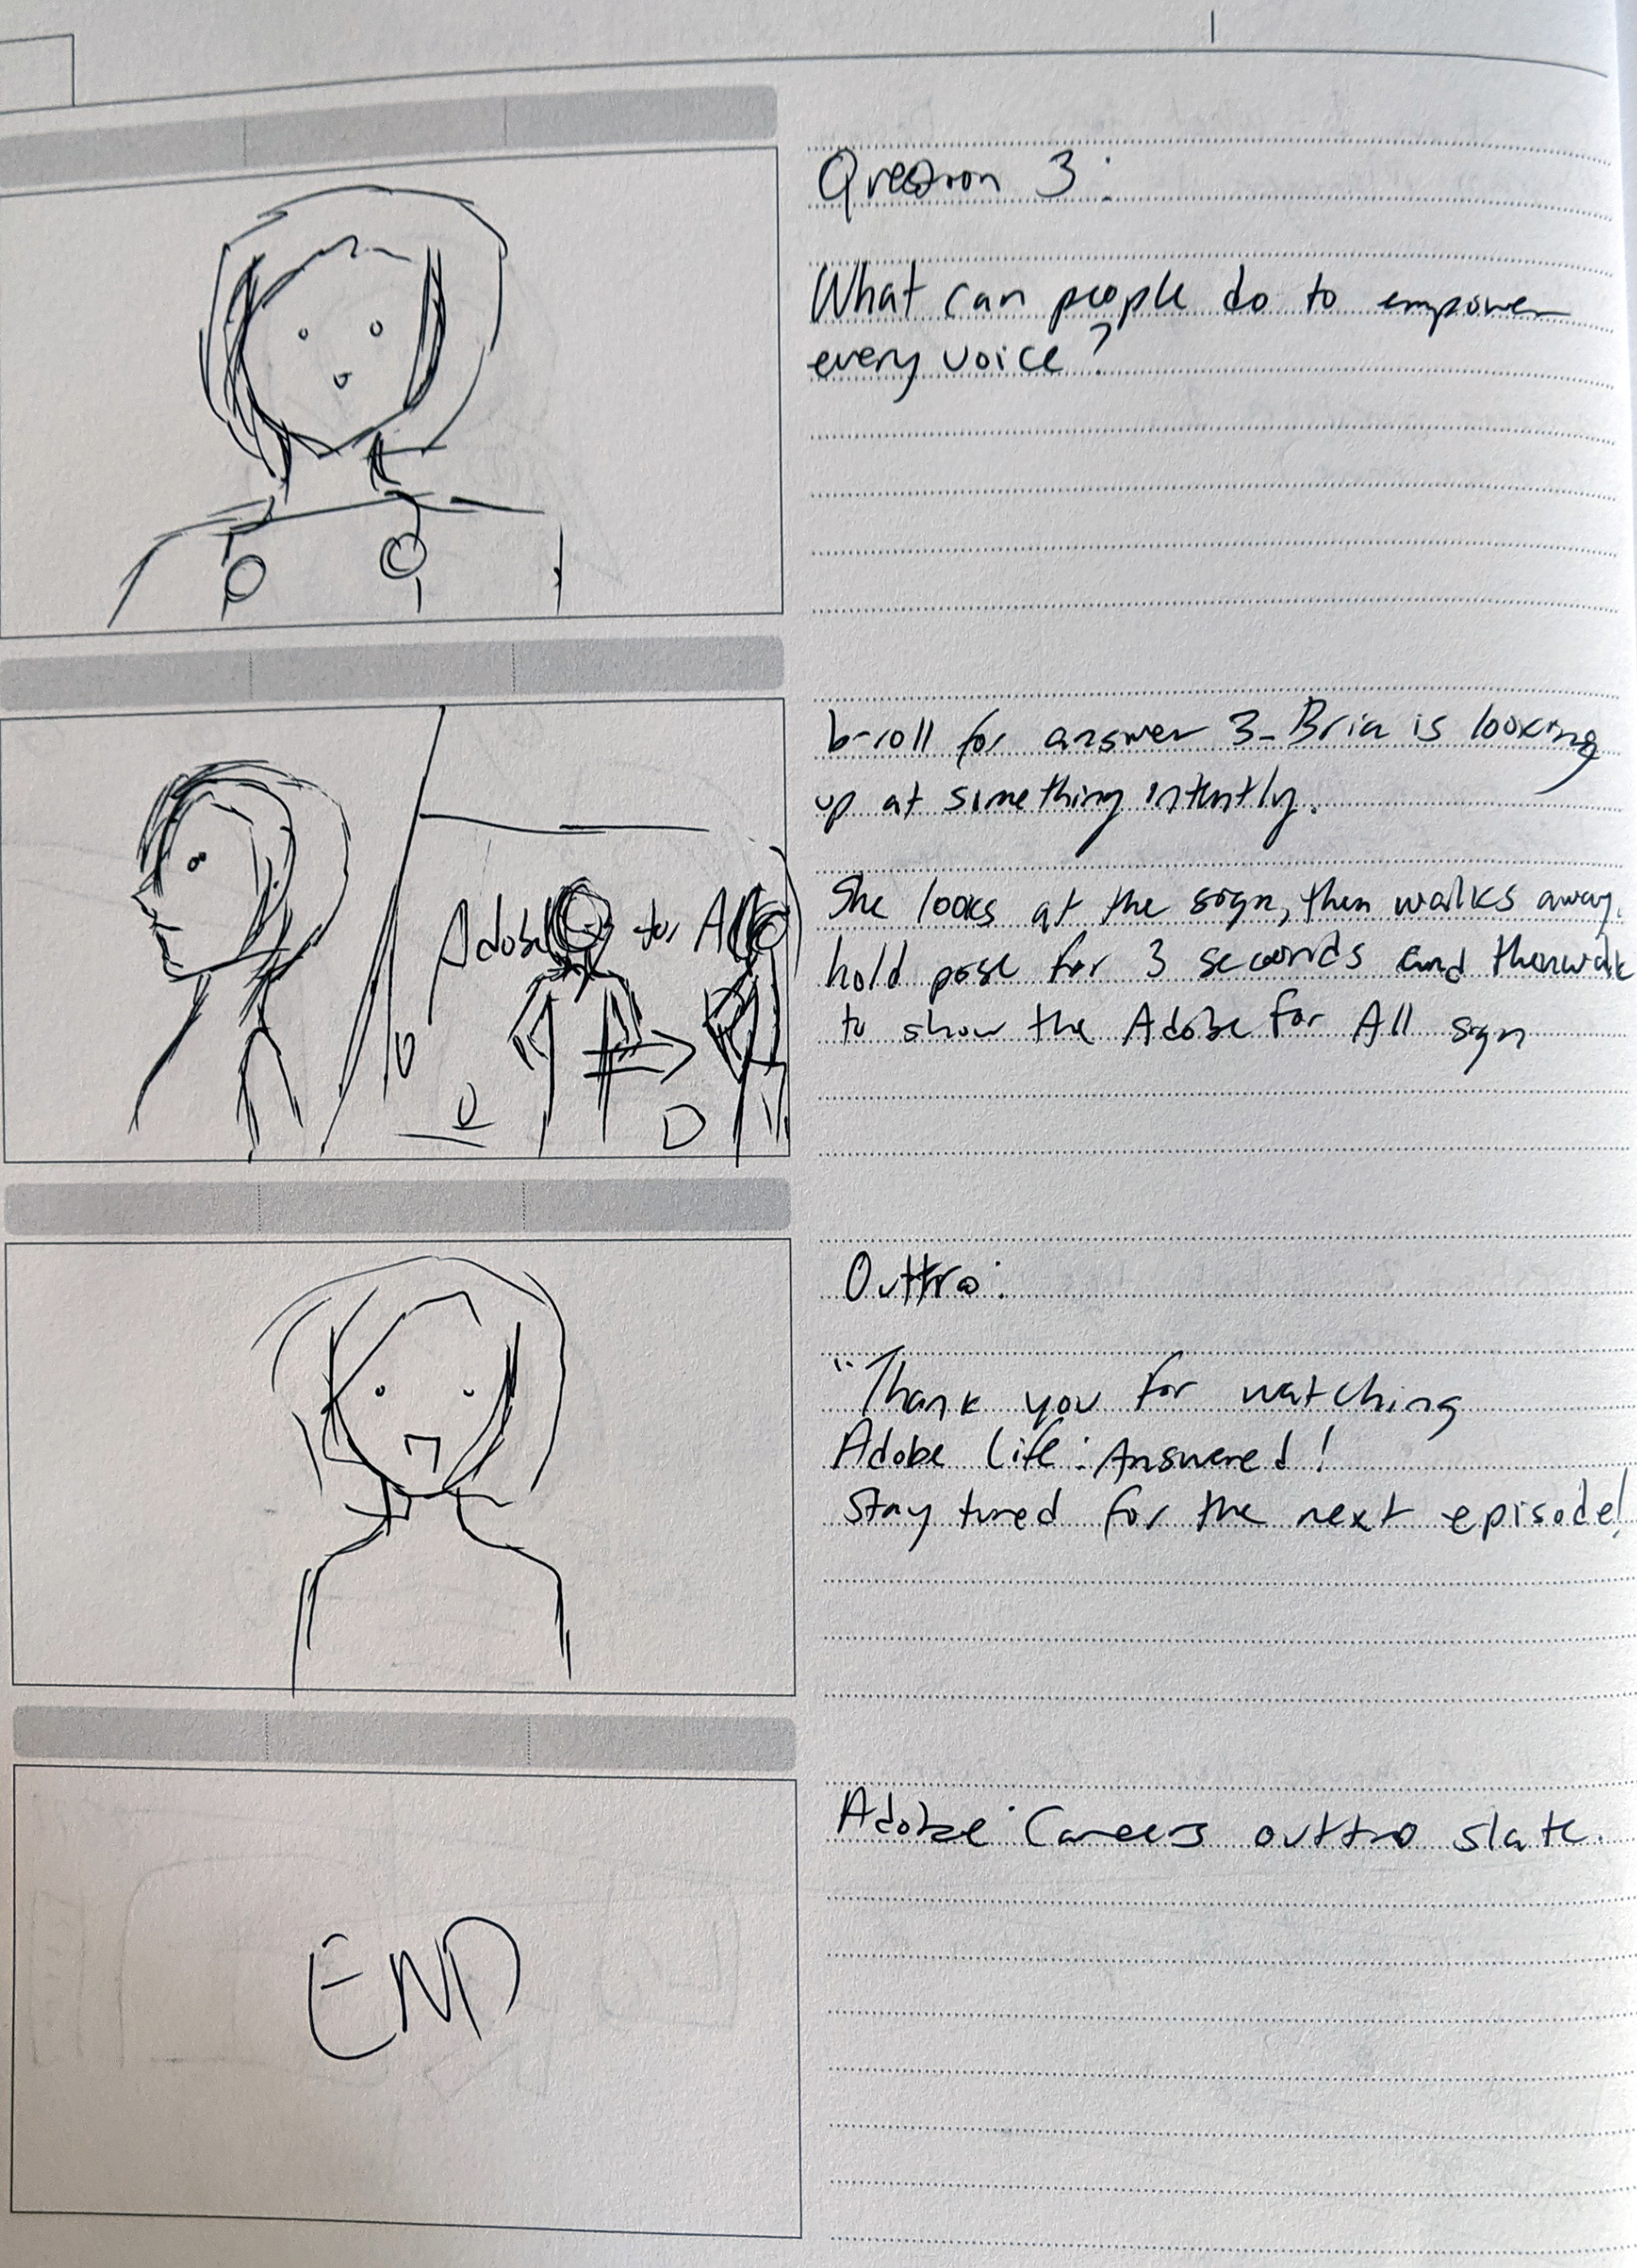 Question 3:
What can people do to empower
every voice?
b-roll for answer 3- Bria is looking
up at something intently.
Adobe for All
She looks at the sign, then walks away.
hold pose for 3 seconds and then walk
to show the Adobe for All sign
Outtro:
"Thank you for watching
Adobe Life: Answered!
Stay tuned for the next episode!
Adobe Careers outtro slate.
END